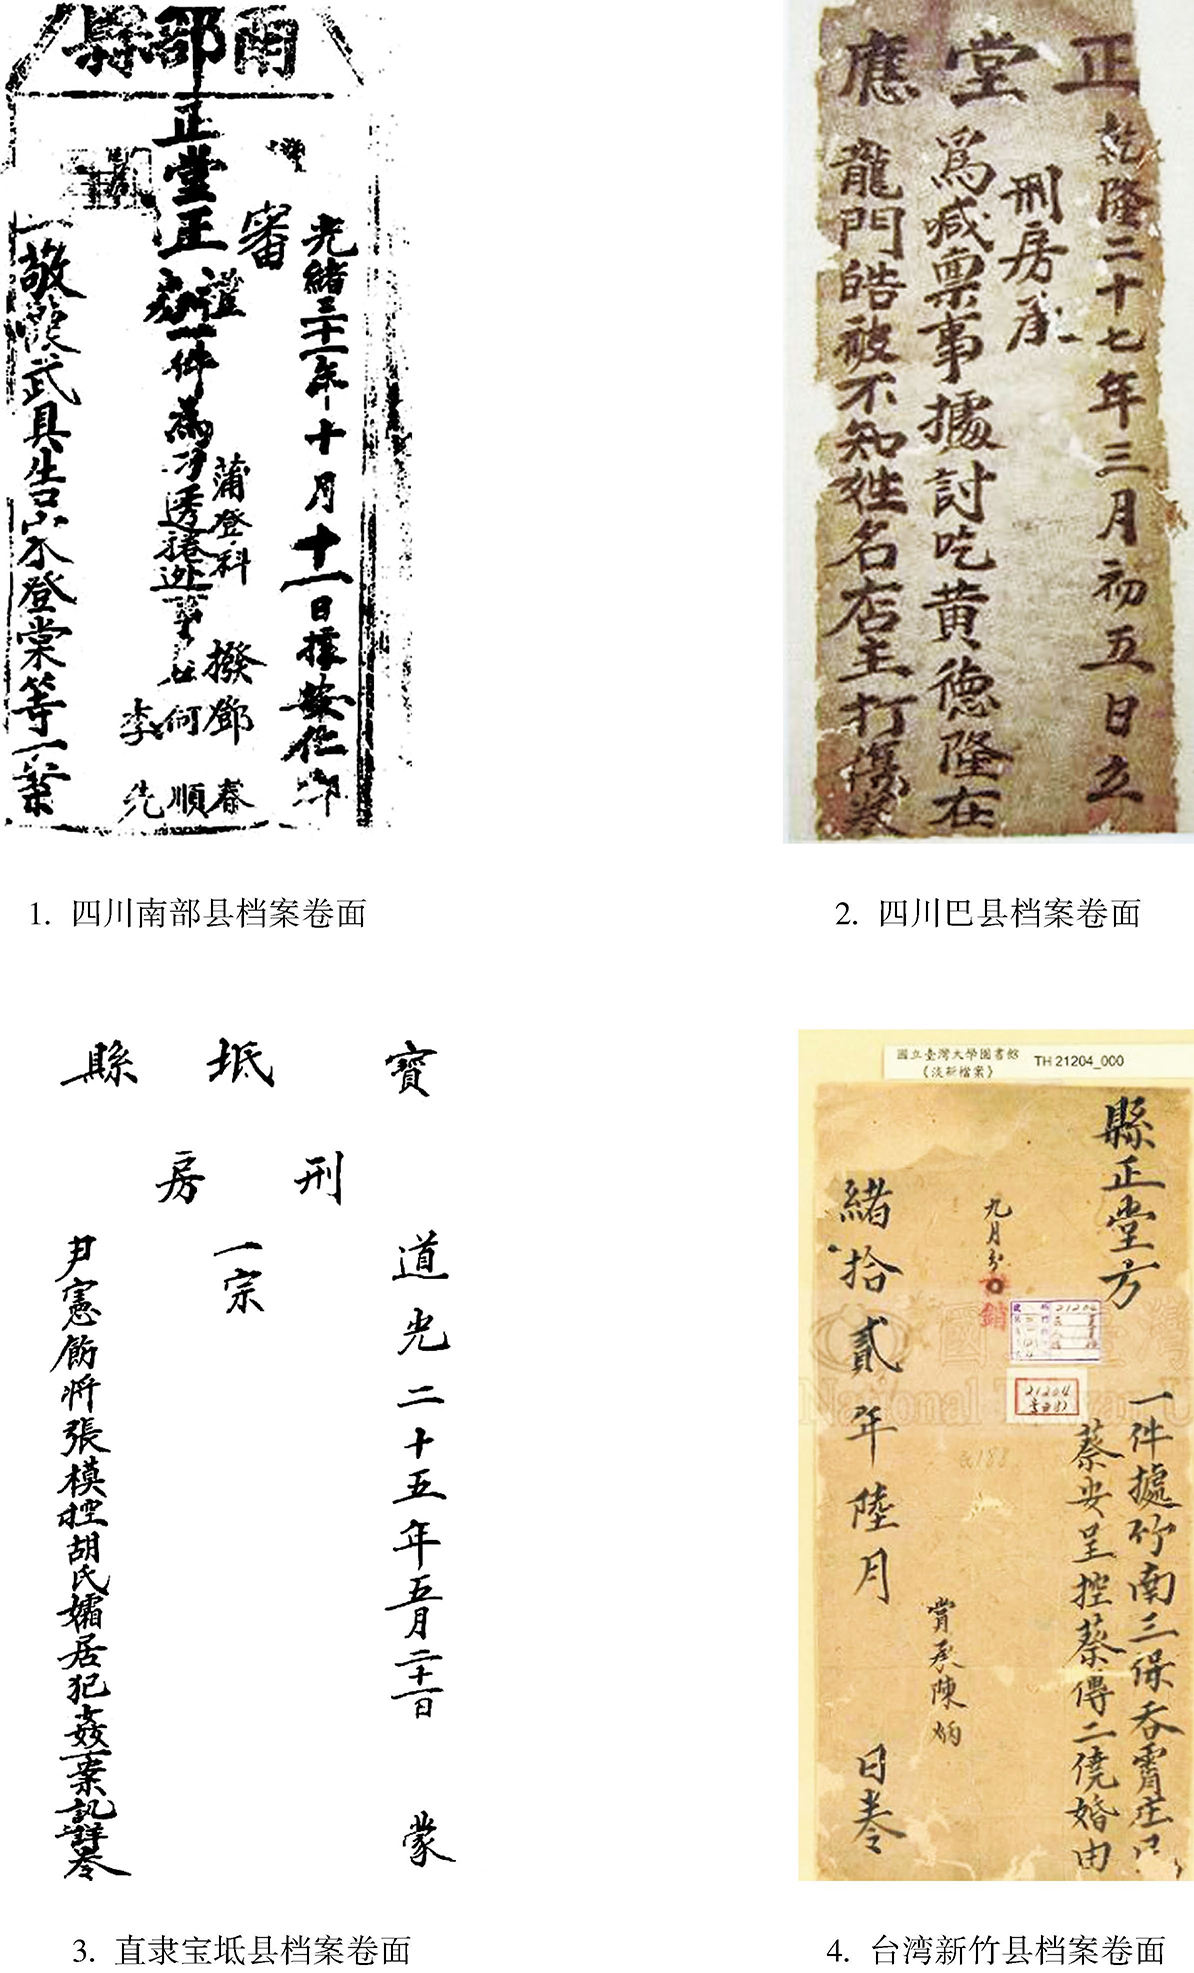 南部縣
光緒三十一年十月十一日據安仁鄉
審
蒲登科
撥鄧春
何順
李先
正堂正
禮
一件為
敬懷武具告宋登棠等一案
1. 四川南部县档案卷面
正堂應
乾隆二十七年三月初五日立
刑房承
為喊禀事據討吃黄德隆在
龍門皓被不知姓名店主打傷卷
2. 四川巴县档案卷面
寳坻縣
刑房
道光二十五年五月二十一日 蒙
一宗
尹憲飭將張模控胡氏孀居犯姦一案訊詳卷
3. 直隶宝坻县档案卷面
國立臺灣大學圖書館
《淡新檔案》
TH 21204_000
縣正堂方
一件據竹南三保吞霄庄
蔡安呈控蔡傳二僥婚由
九月分
銷
21204
21204
緒拾貳年陸月 日卷
承陳炳
4. 台湾新竹县档案卷面